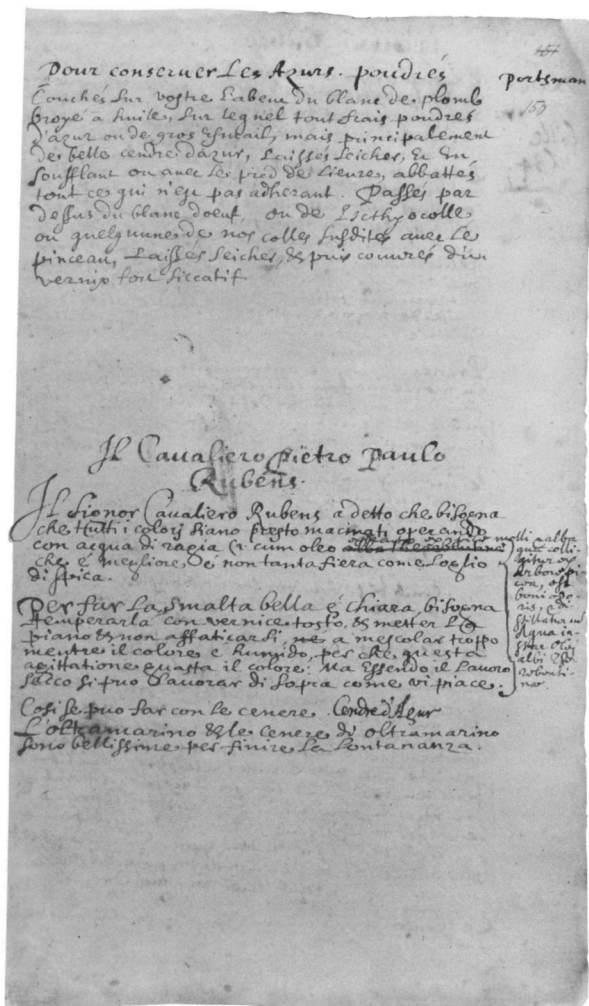 Pour conseruer Les Azurs. poudrés
Portsman
153
Couchés sur vostre Labeur du blanc de plomb
broyé a huile, sur lequel tout frais poudrés
d'azur ou de gros esmail, mais principalement
de belle cendre d'azur, Laissés seicher, & en
soufflant ou auec le pied de Lieure, abbattés
tout ce qui n'est pas adherant. Passés par
dessus du blanc doeuf, ou de Icthyocolle
ou quelqunne de nos colles susdites auec le
pinceau, Laissés seicher, & puis couurés d'un
vernix fort siccatif.
Il Cavaliero Pietro Paulo
Rubens.
Il Signor Cavaliero Rubens a detto che bisogna
che tutti i colorj siano presto macinati operando
con acqua di ragia
che é megliore, & non tanta fiera come L'oglio
di spica.
Per far La smalta bella é chiara, bisogna
temperarla con vernice tosto, & metter Lo
piano & non affaticarsi, ne a mescolar troppo
mentre il colore é humido, per che questa
agittatione guasta il colore. Ma Essendo il Lavoro
secco si puo Lavorar di sopra come vi piace.
Cosi se puo far con le cenere. Cendre d'Azur
L'oltramarino & le cenere di oltramarino
sono bellissime per finire La Lontananza.